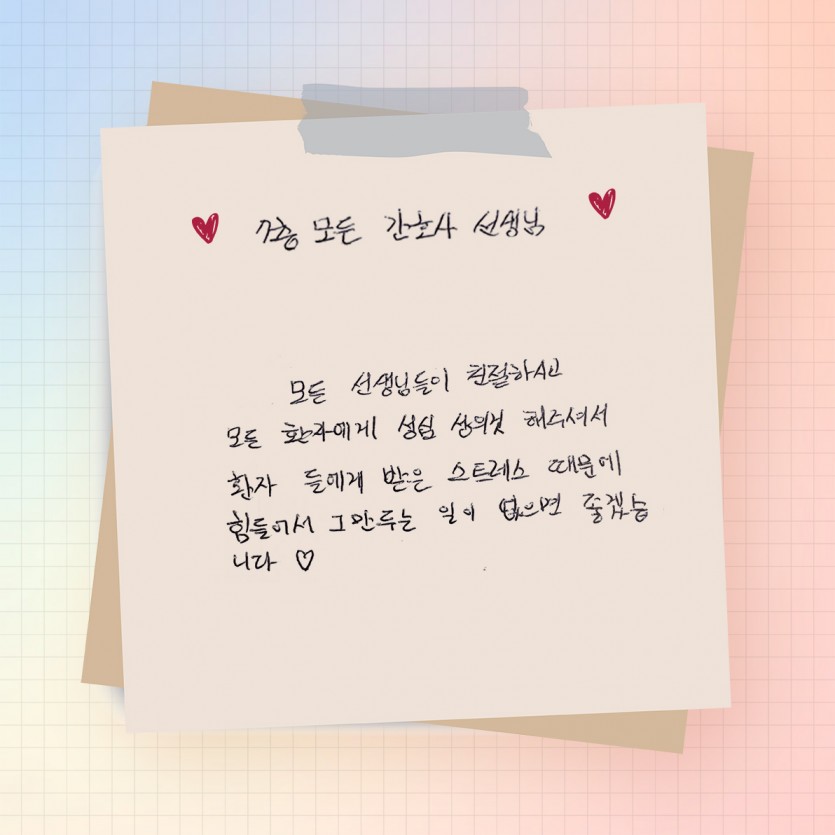 7층 모든 간호사 선생님
모든 선생님들이 친절하시고
모든 환자에게 성심 성의것 해주셔서
환자 들에게 받은 스트레스 때문에
힘들어서 그만두는 일이 없으면 좋겠습
니다 ♡